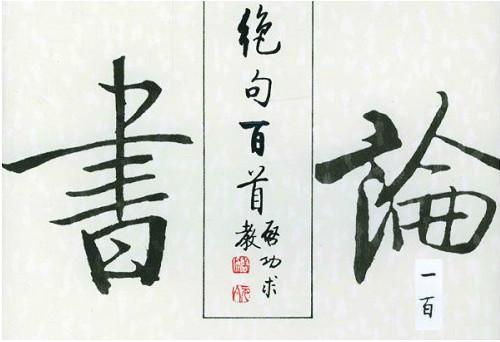 論書
絶句百首
啓功求
教
一百